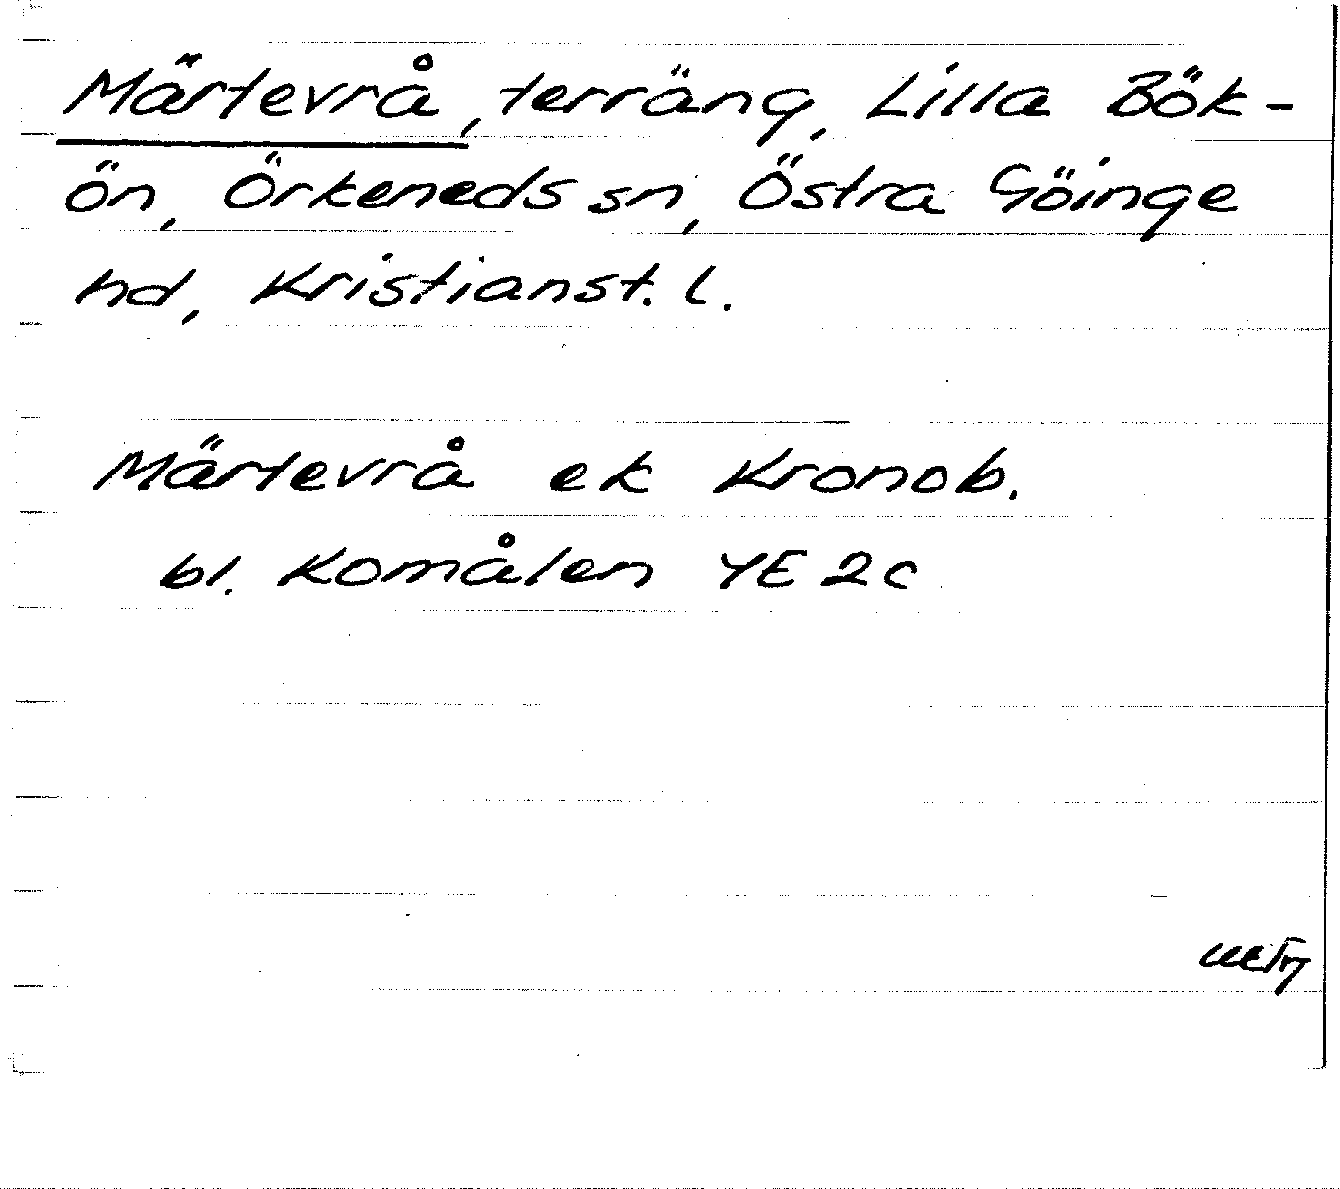 Märtevrå, terräng, Lilla Bök-
ön, Örkeneds sn, Östra Göinge
hd, Kristianst. l.
Märtevrå ek Kronob.
bl. Komålen YE 2c